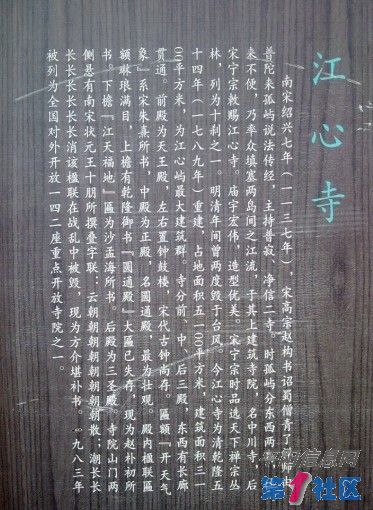 江心寺
南宋绍兴七年(一一三七年),宋高宗赵构书诏蜀僧青了
普陀来孤屿说法传经,主持普寂、净信二寺。时孤屿分东西两
来不便,乃率众填塞两岛间之江流,于其上建筑寺院,名中川寺,后
宋宁宗敕赐江心寺。庙宇宏伟,造型优美。宋宁宗时品选天下禅宗丛
林,列为十刹之一。明清年间曾两度毁于台风。今江心寺为清乾隆五
十四年(一七八九年)重建,占地面积五一〇〇平方米,建筑面积三一
〇〇平方米,为江心屿最大建筑群。寺分前、中、后三殿,东西有长廊
贯通。前殿为天王殿,左右置钟鼓楼,宋代古钟尚存。匾额『开天气
象』系宋朱熹所书,中殿为正殿,名圆通殿,最为壮观。殿内楹联匾
额琳琅满目,上檐有乾隆御书『圆通殿』大匾已失存,现为赵朴初所
书。下檐『江天福地』匾为沙孟海所书。后殿为三圣殿。寺院山门两
侧悬有南宋状元王十朋所撰叠字联:云朝朝朝朝朝朝朝朝散;潮长长
长长长长长长消该楹联在战乱中被毁,现为方介堪补书。一九八三年
被列为全国对外开放一四二座重点开放寺院之一。
信息网
第1社区